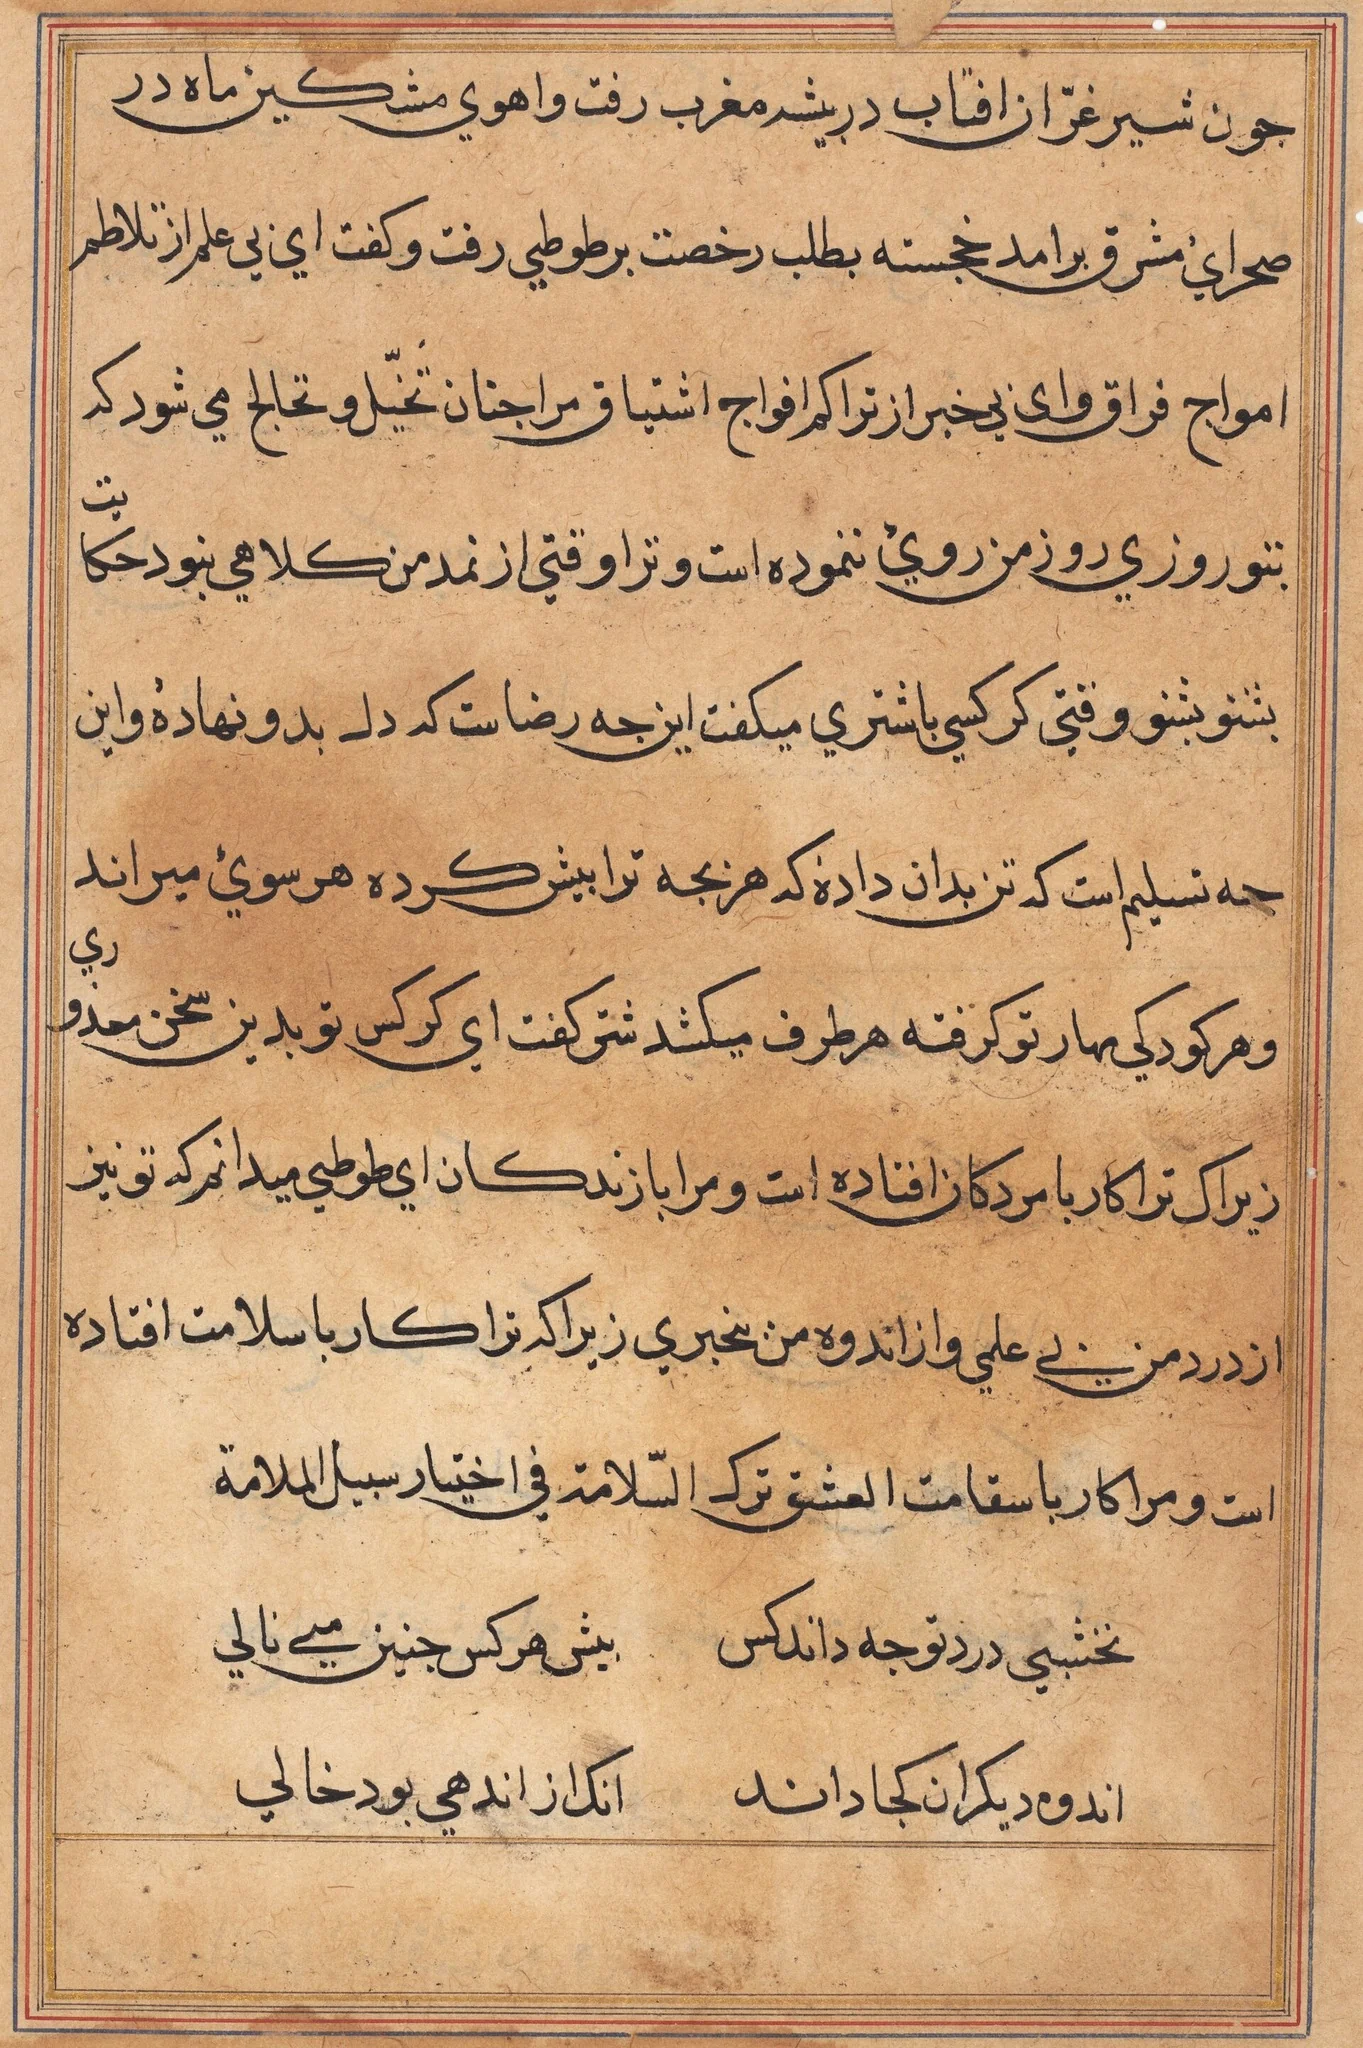 جون شیر غرّان افتاب در بیشه مغرب رفت و اهوي مشکین ماه در
صحرائ مشرق برامد خجسته بطلب رخصت بر طوطي رفت و کفت اي بي علم از تلاطم
امواج فراق و ای بي خبر از تراکم افواج اشتیاق مرا جنان تخیّل و تخالج مي شود که
بتو روزي روز من روئ ننموده است و ترا وقتي از نمد من کلاهي نبود حکایت
بشنو بشنو وقتي کرکسي با شتري میکفت این جه رضاست که دل بدو نهادهٔ و این
جه تسلیم است که تن بدان دادهٔ که هر بجه ترا بیش کرده هر سوئ میراند
و هر کودکي مهار تو کرفته هر طرف میکشد شتر کفت اي کرکس تو بدین سخن معذوري
زیراک ترا کار با مردکان افتاده است و مرا با زندکان اي طوطي میدانم که تو نیز
از درد من بي علمي و از اندوه من بیخبري زیرا که ترا کار با سلامت افتاده
است و مرا کار با سقامت العشق ترک السّلامة في اختیار سبیل الملامة
نخشبي درد تو جه داند کس بیش هر کس جنین مي نالي
اندوه دیکران کجا داند انک از اندهي بود خالي